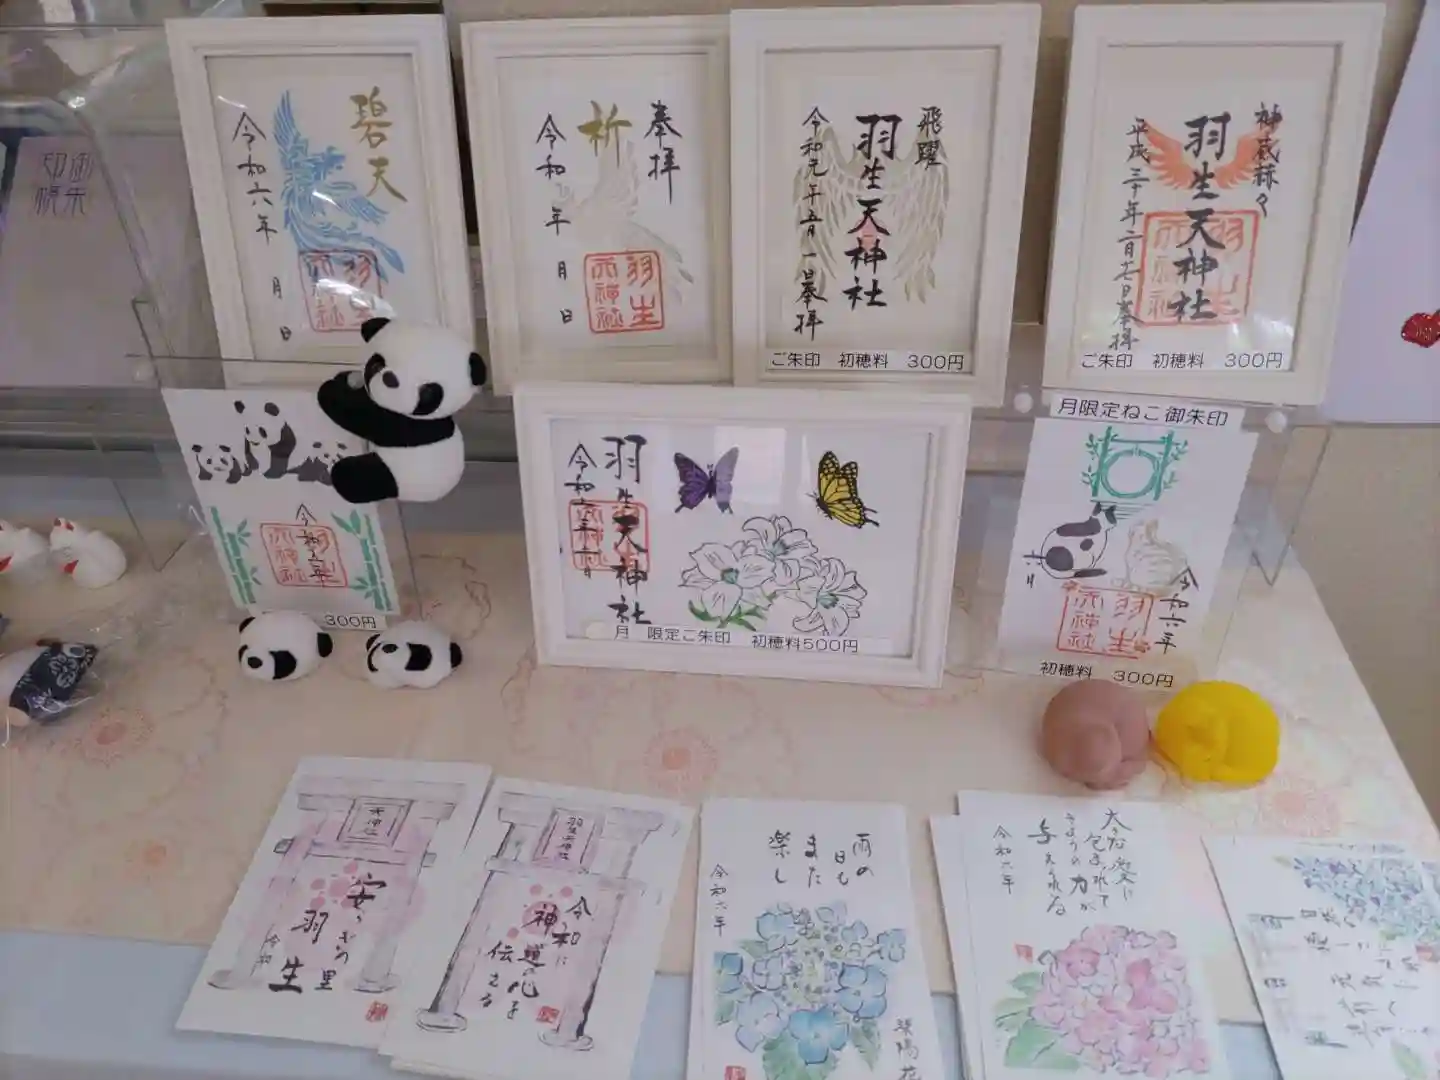 御朱
印帳
碧天
令和六年
月
日
奉拝
祈
令和
年
月
日
羽生
天神社
飛躍
羽生天神社
令和元年五月一日奉拝
ご朱印 初穂料 300円
羽生天神社
平成三十年二月十七日奉拝
羽生
天神社
ご朱印 初穂料 300円
令和六年
羽生
天神社
300円
羽生天神社
令和六年六月
月 限定ご朱印 初穂料500円
月限定ねこ御朱印
六月
令和六年
羽生
天神社
初穂料 300円
天神社
羽生
令和
羽生天神社
令和に
神道の心を
伝える
雨の
日も
また
楽し
令和六年
紫陽花
大きな愛に
包まれて
力が
与えられる
令和六年